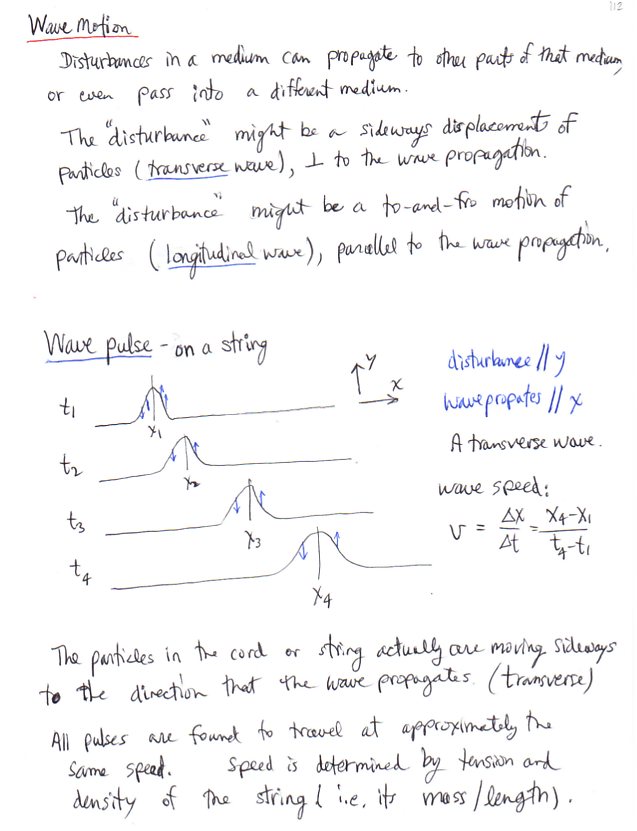 112
Wave Motion
Disturbances in a medium can propagate to other parts of that medium,
or even pass into a different medium.
The "disturbance" might be a sideways displacement of
particles (transverse wave), ⊥ to the wave propagation.
The "disturbance" might be a to-and-fro motion of
particles (longitudinal wave), parallel to the wave propagation.
Wave pulse - on a string
y
x
disturbance // y
wave propates // x
A transverse wave.
wave speed:
v = Δx/Δt = x4-x1/t4-t1
t1
x1
t2
x2
t3
x3
t4
x4
The particles in the cord or string actually are moving sideways
to the direction that the wave propagates. (transverse)
All pulses are found to travel at approximately the
same speed. Speed is determined by tension and
density of the string (i.e, its mass/length).